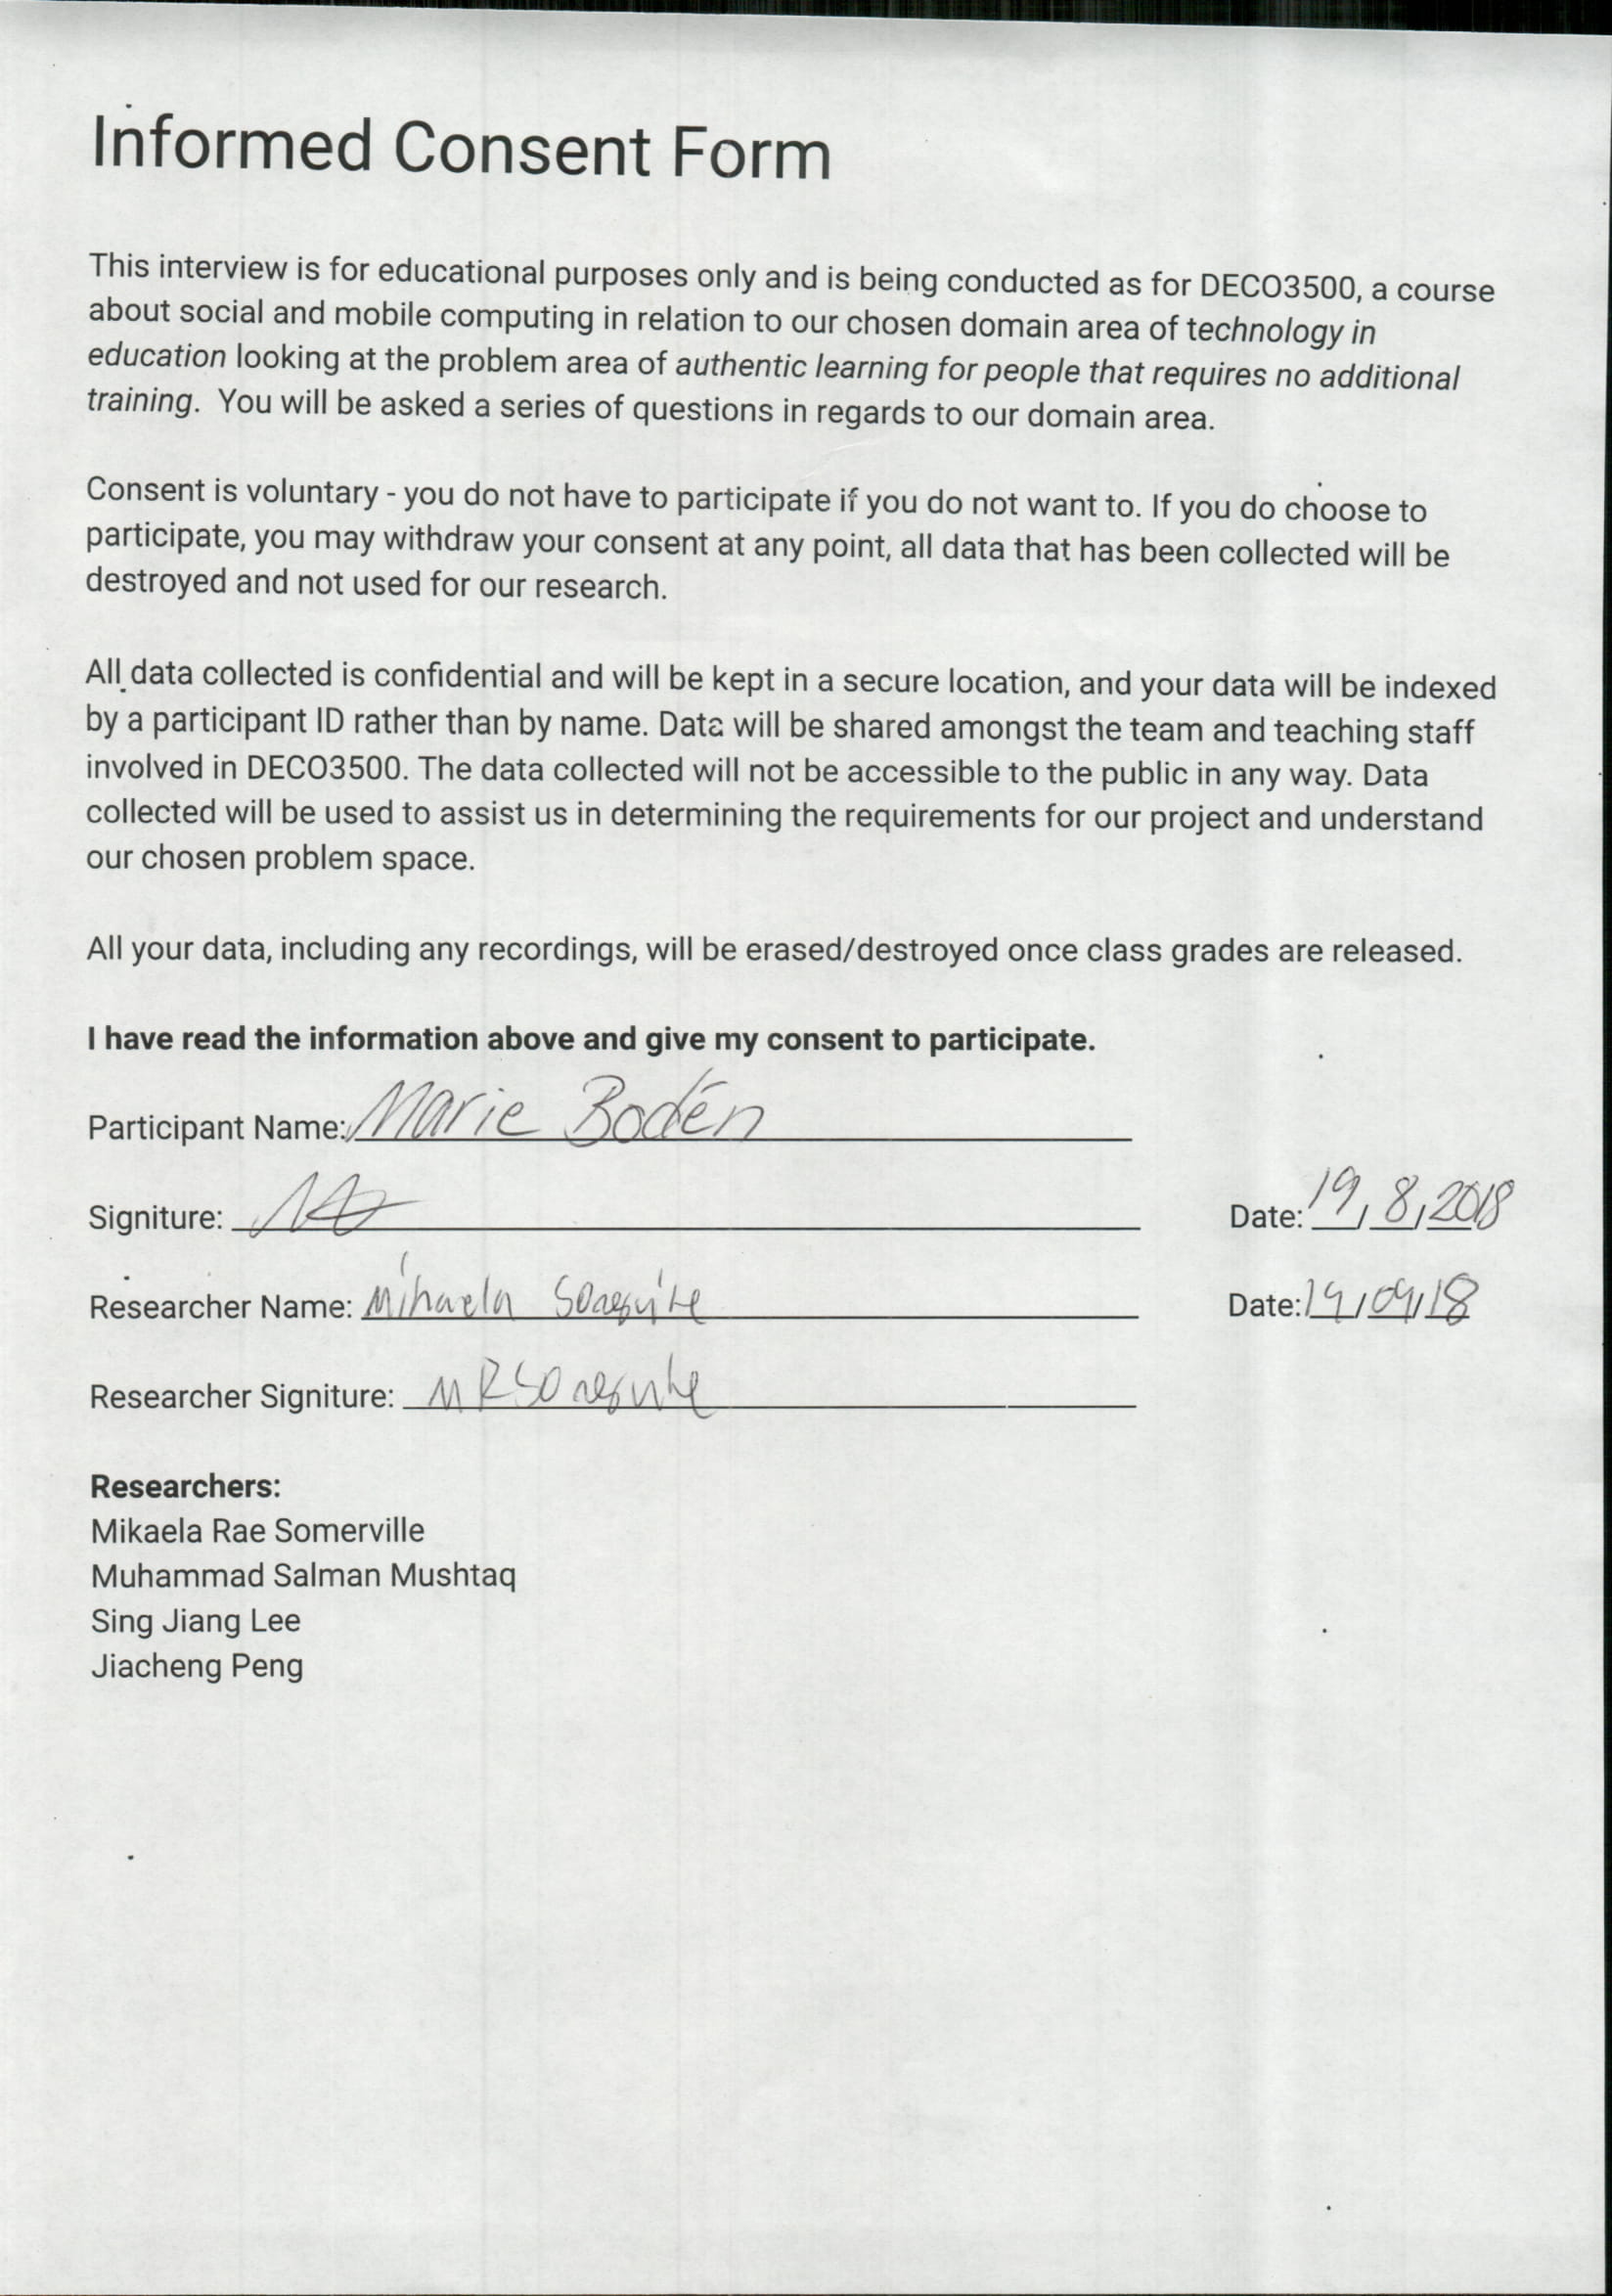 Informed Consent Form
This interview is for educational purposes only and is being conducted as for DECO3500, a course
about social and mobile computing in relation to our chosen domain area of technology in
education looking at the problem area of authentic learning for people that requires no additional
training. You will be asked a series of questions in regards to our domain area.
Consent is voluntary - you do not have to participate if you do not want to. If you do choose to
participate, you may withdraw your consent at any point, all data that has been collected will be
destroyed and not used for our research.
All data collected is confidential and will be kept in a secure location, and your data will be indexed
by a participant ID rather than by name. Data will be shared amongst the team and teaching staff
involved in DECO3500. The data collected will not be accessible to the public in any way. Data
collected will be used to assist us in determining the requirements for our project and understand
our chosen problem space.
All your data, including any recordings, will be erased/destroyed once class grades are released.
I have read the information above and give my consent to participate.
Participant Name: Marie Bodén
Signiture: Date: 19/8/2018
Researcher Name: Mikaela Somerville Date: 19/09/18
Researcher Signiture: MRSomerville
Researchers:
Mikaela Rae Somerville
Muhammad Salman Mushtaq
Sing Jiang Lee
Jiacheng Peng